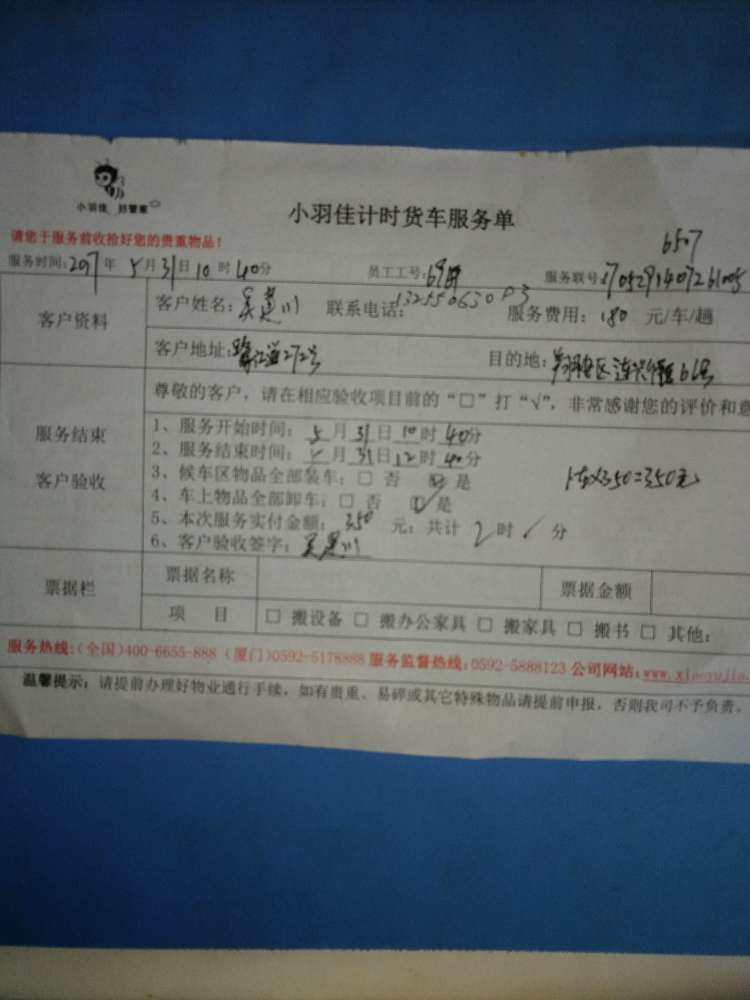 小羽佳 好管家
小羽佳计时货车服务单
6507
请您于服务前收拾好您的贵重物品！
服务时间：2017年 5月31日10时40分 员工工号： 服务联号：
客户资料
客户姓名：吴建川 联系电话：13255063003 服务费用：180 元/车/趟
客户地址：272号 目的地：翔安区
服务结束
客户验收
尊敬的客户，请在相应验收项目前的“□”打“√”，非常感谢您的评价和意
1、服务开始时间：5月31日10时40分
2、服务结束时间：5月31日12时40分
3、候车区物品全部装车：□ 否 ☑ 是
4、车上物品全部卸车：□ 否 ☑ 是
1车x350=350元
5、本次服务实付金额：350 元；共计 2 时 / 分
6、客户验收签字：吴建川
票据栏
票据名称 票据金额
项 目 □ 搬设备 □ 搬办公家具 □ 搬家具 □ 搬书 □ 其他：
服务热线：（全国）400-6655-888（厦门）0592-5178888 服务监督热线：0592-5888123 公司网站：www.xiaoyujia.
温馨提示：请提前办理好物业通行手续，如有贵重、易碎或其它特殊物品请提前申报，否则我司不予负责。